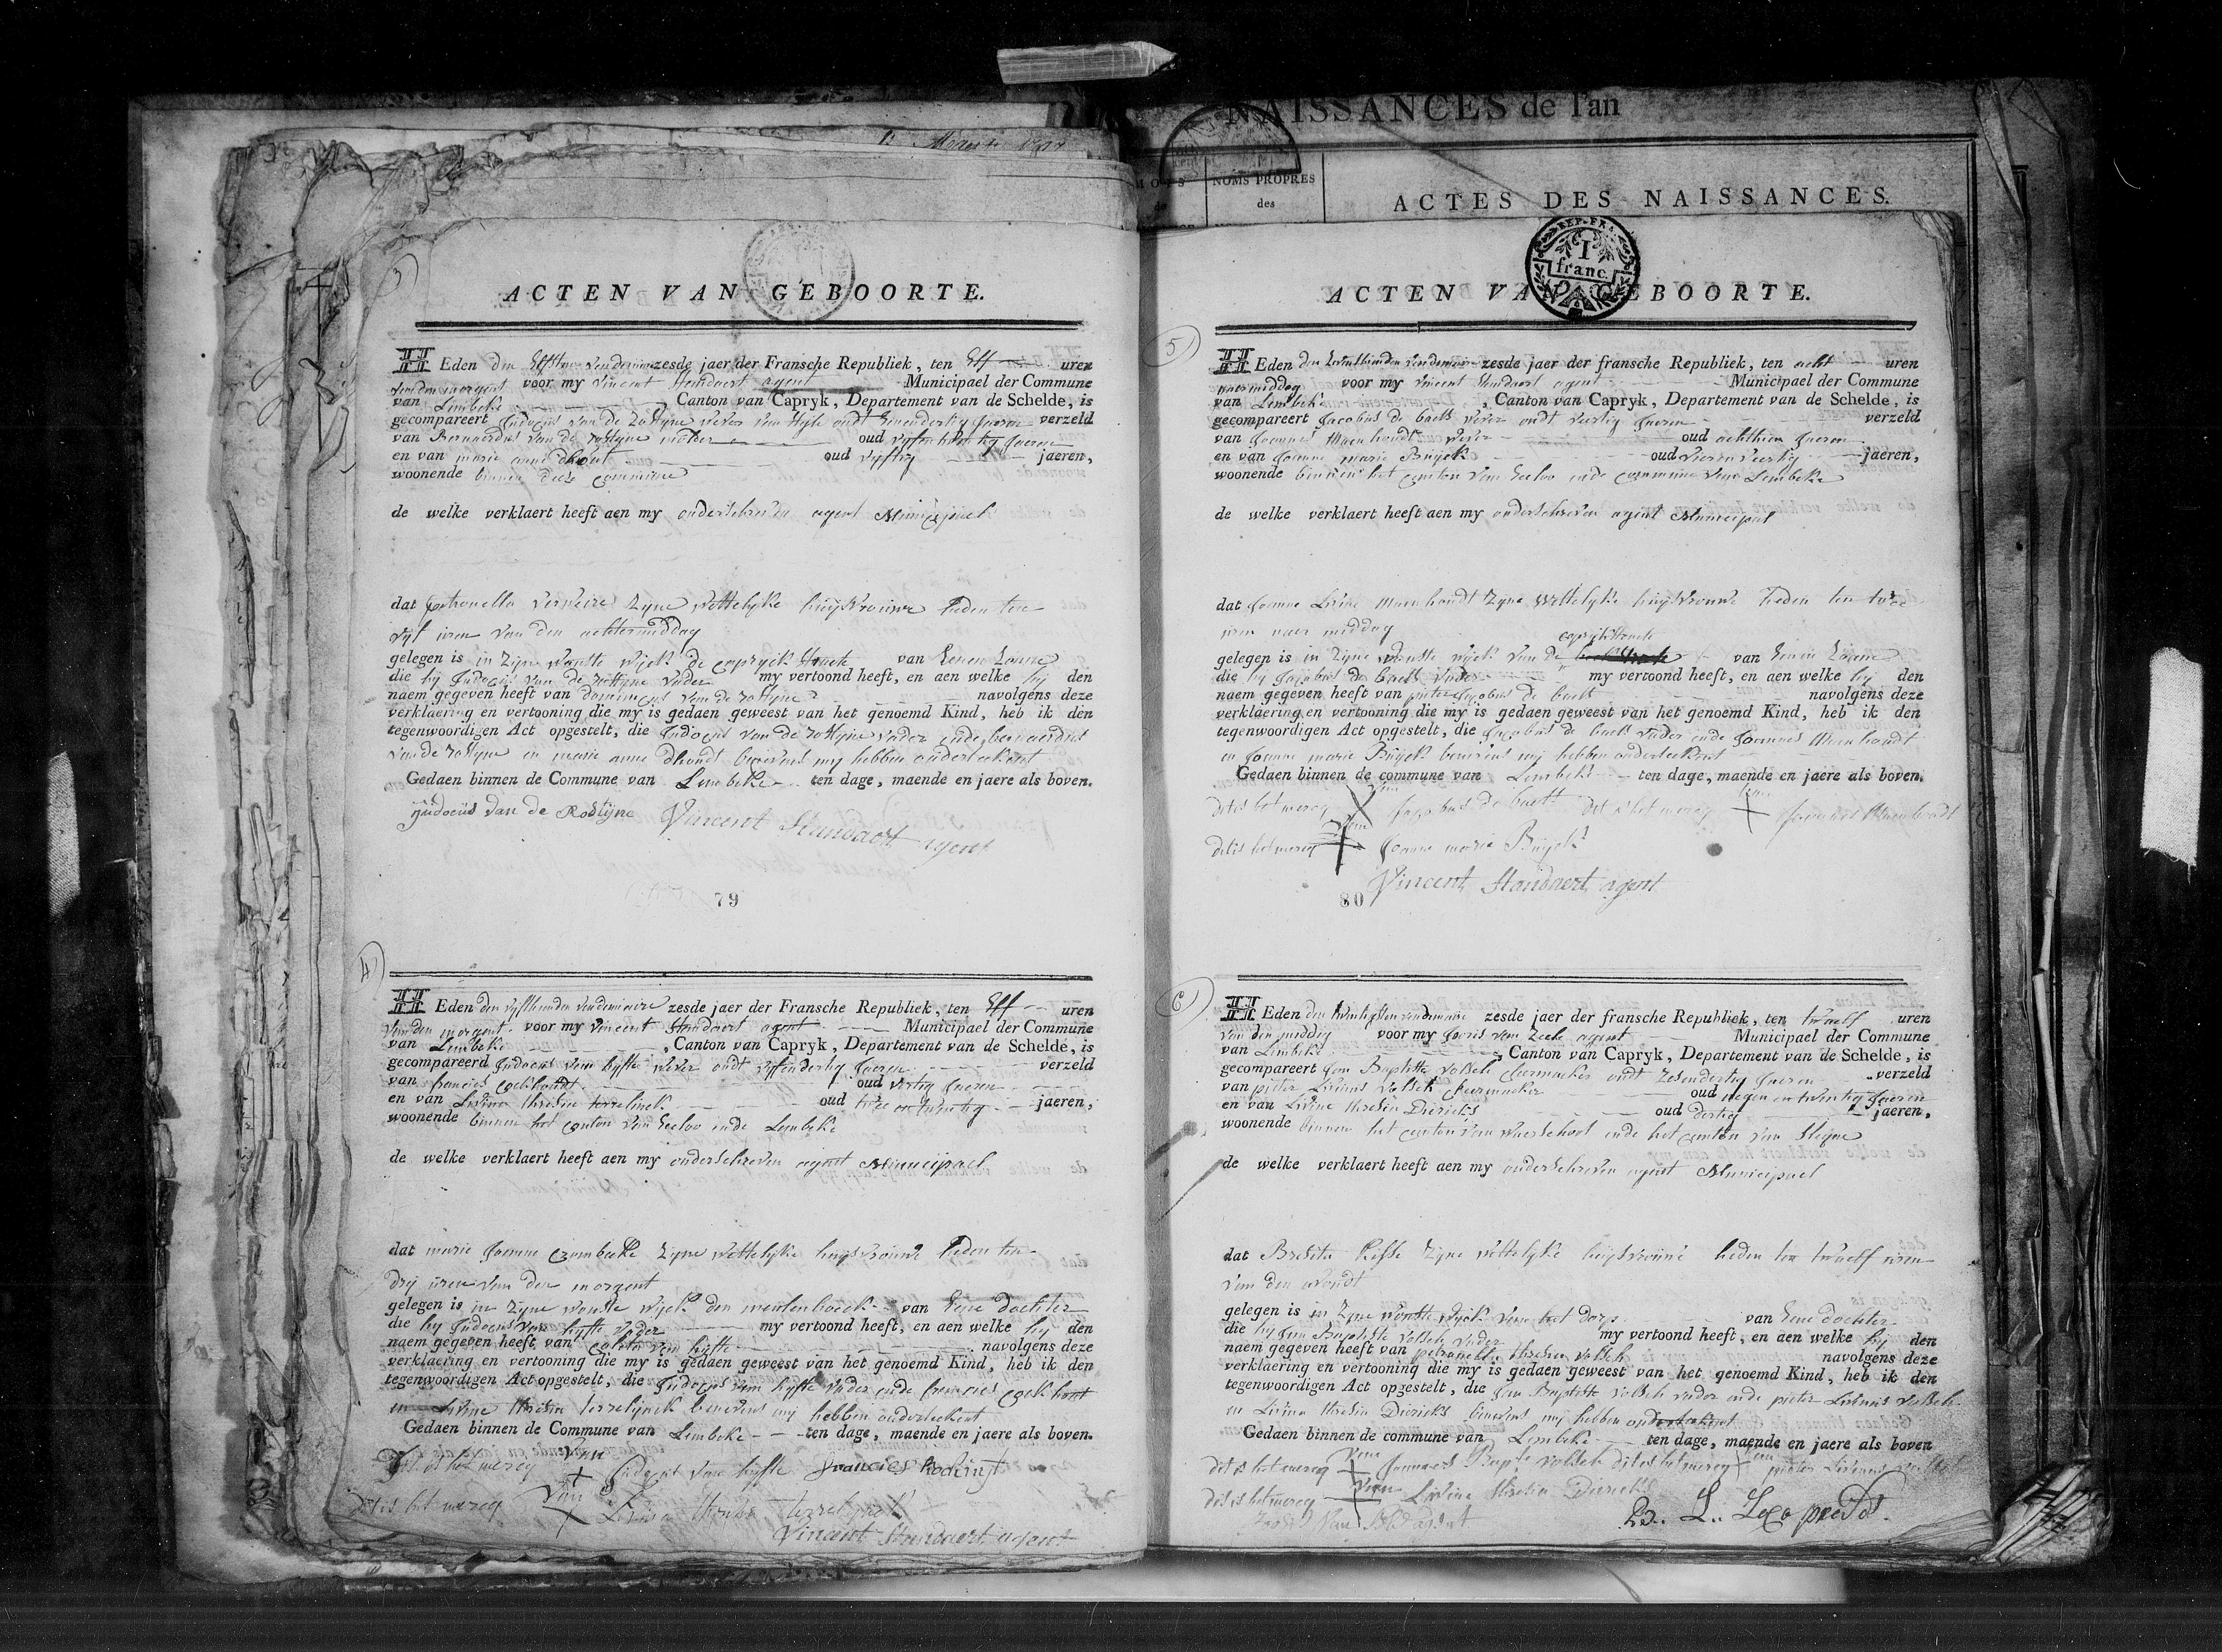 NAISSANCES de l'an
NOMS PROPRES
des
ACTES DES NAISSANCES.
3
ACTEN VAN GEBOORTE.
HEden den Elfsten vendemiaire zesde jaer der Fransche Republiek, ten Elf uren
van den morgent voor my Vincent Standaert agent Municipael der Commune
van Lembeke, Canton van Capryk, Departement van de Schelde, is
gecompareert Judocus van de Rostyne wever van style oudt jaeren verzeld
van Bernaerdus van de Rostyne oud jaeren
en van marie anne dhondt oud vyftig jaeren,
woonende binnen deese commune
de welke verklaert heeft aen my onderschreven agent Municipael
dat petronella verveire zyne wettelyke huysvrouwe heden ten
vyf uren van den achtermiddag
gelegen is in zyne wonste wyck de capryck straete van eenen zoone
die hy Judocus van de rostyne vader my vertoond heeft, en aen welke hy den
naem gegeven heeft van dominicus van de rostyne navolgens deze
verklaering en vertooning die my is gedaen geweest van het genoemd Kind, heb ik den
tegenwoordigen Act opgestelt, die Judocus van de rostyne vader ende bernaerdus
van de rostyne en marie anne dhondt benevens my hebben onderteekent
Gedaen binnen de Commune van Lembeke ten dage, maende en jaere als boven.
Judocus van de Rostijne Vincent Standaert agent
79
4
HEden den vyfthienden vendemiaire zesde jaer der Fransche Republiek, ten Elf uren
van den morgent voor my Vincent Standaert agent Municipael der Commune
van Lembeke, Canton van Capryk, Departement van de Schelde, is
gecompareerd Judocus van hyfte wever oudt vyfendertig jaeren verzeld
van francies Cockhoudt oud vertig jaeren
en van Livina theresia terrelinck oud twee en twintig jaeren,
woonende binnen het canton van Eecloo ende Lembeke
de welke verklaert heeft aen my onderschreven agent Municipael
dat marie Joanne Crombeecke zyne wettelyke huysvrouwe heden ten
dry uren van den morgent
gelegen is in zyne wonste wyck den meulenhoeck van Eene dochter
die hy Judocus van hyfte vader my vertoond heeft, en aen welke hy den
naem gegeven heeft van van hyfte navolgens deze
verklaering en vertooning die my is gedaen geweest van het genoemd Kind, heb ik den
tegenwoordigen Act opgestelt, die Judocus van hyfte vader ende francies Cockhout
en Livine theresia terrelynck benevens my hebben onderteekent
Gedaen binnen de Commune van Lembeke ten dage, maende en jaere als boven.
Dit is het mercq van Judocus van hyfte francies
dit is het mercq van Livina theresia terrelynck
Vincent Standaert agent
5
ACTEN VAN GEBOORTE.
REP. FRA.
1
franc.
HEden den vendemiaire zesde jaer der fransche Republiek, ten acht uren
naermiddag voor my Vincent Standaert agent Municipael der Commune
van Lembeke, Canton van Capryk, Departement van de Schelde, is
gecompareert Jacobus de baets wever oudt veertig jaeren verzeld
van Joannes Maenhoudt wever oud achthien jaeren
en van Joanne marie Buyck oud vierenveertig jaeren,
woonende binnen het canton van Eecloo ende commune van Lembeke
de welke verklaert heeft aen my onderschreven agent Municipael
dat Joanne Livine Maenhoudt zyne wettelyke huysvrouwe heden ten twee
uren naer middag
caprykstraete
gelegen is in zyne wonste wyck van de van Eenen zoone
die hy Jacobus de baets vader my vertoond heeft, en aen welke hy den
naem gegeven heeft van pieter Jacobus de baets navolgens deze
verklaering en vertooning die my is gedaen geweest van het genoemd Kind, heb ik den
tegenwoordigen Act opgestelt, die Jacobus de baets vader ende Joannes Maenhoudt
en Joanne marie Buyck benevens my hebben onderteekent
Gedaen binnen de commune van Lembeke ten dage, maende en jaere als boven.
dit is het mercq van Jacobus de baets dit is het mercq van Joannes Maenhoudt
dit is het mercq van Joanne marie Buyck
80 Vincent Standaert agent
6
HEden den twintigsten vendemiaire zesde jaer der fransche Republiek, ten twaelf uren
van den middag voor my Joris van agent Municipael der Commune
van Lembeke, Canton van Capryk, Departement van de Schelde, is
gecompareert Jan Baptiste oudt zesendertig jaeren verzeld
van pieter Livinus oud negen en twintig jaeren
en van Livine theresia Diericks oud dertig jaeren,
woonende binnen het canton van Waerschoot ende het canton van
de welke verklaert heeft aen my onderschreven agent Municipael
dat zyne wettelyke huysvrouwe heden ten twaelf uren
van den avondt
gelegen is in zyne wonste wyck van het dorp van Eene dochter
die hy Jan Baptiste vader my vertoond heeft, en aen welke hy den
naem gegeven heeft van petronella theresia navolgens deze
verklaering en vertooning die my is gedaen geweest van het genoemd Kind, heb ik den
tegenwoordigen Act opgestelt, die Jan Baptiste vader ende pieter Livinus
en Livina theresia Diericks benevens my hebben onderteekent
Gedaen binnen de commune van Lembeke ten dage, maende en jaere als boven
dit is het mercq van Joannes Bapte dit is het mercq van pieter Livinus
dit is het mercq van Livine theresia Diericks